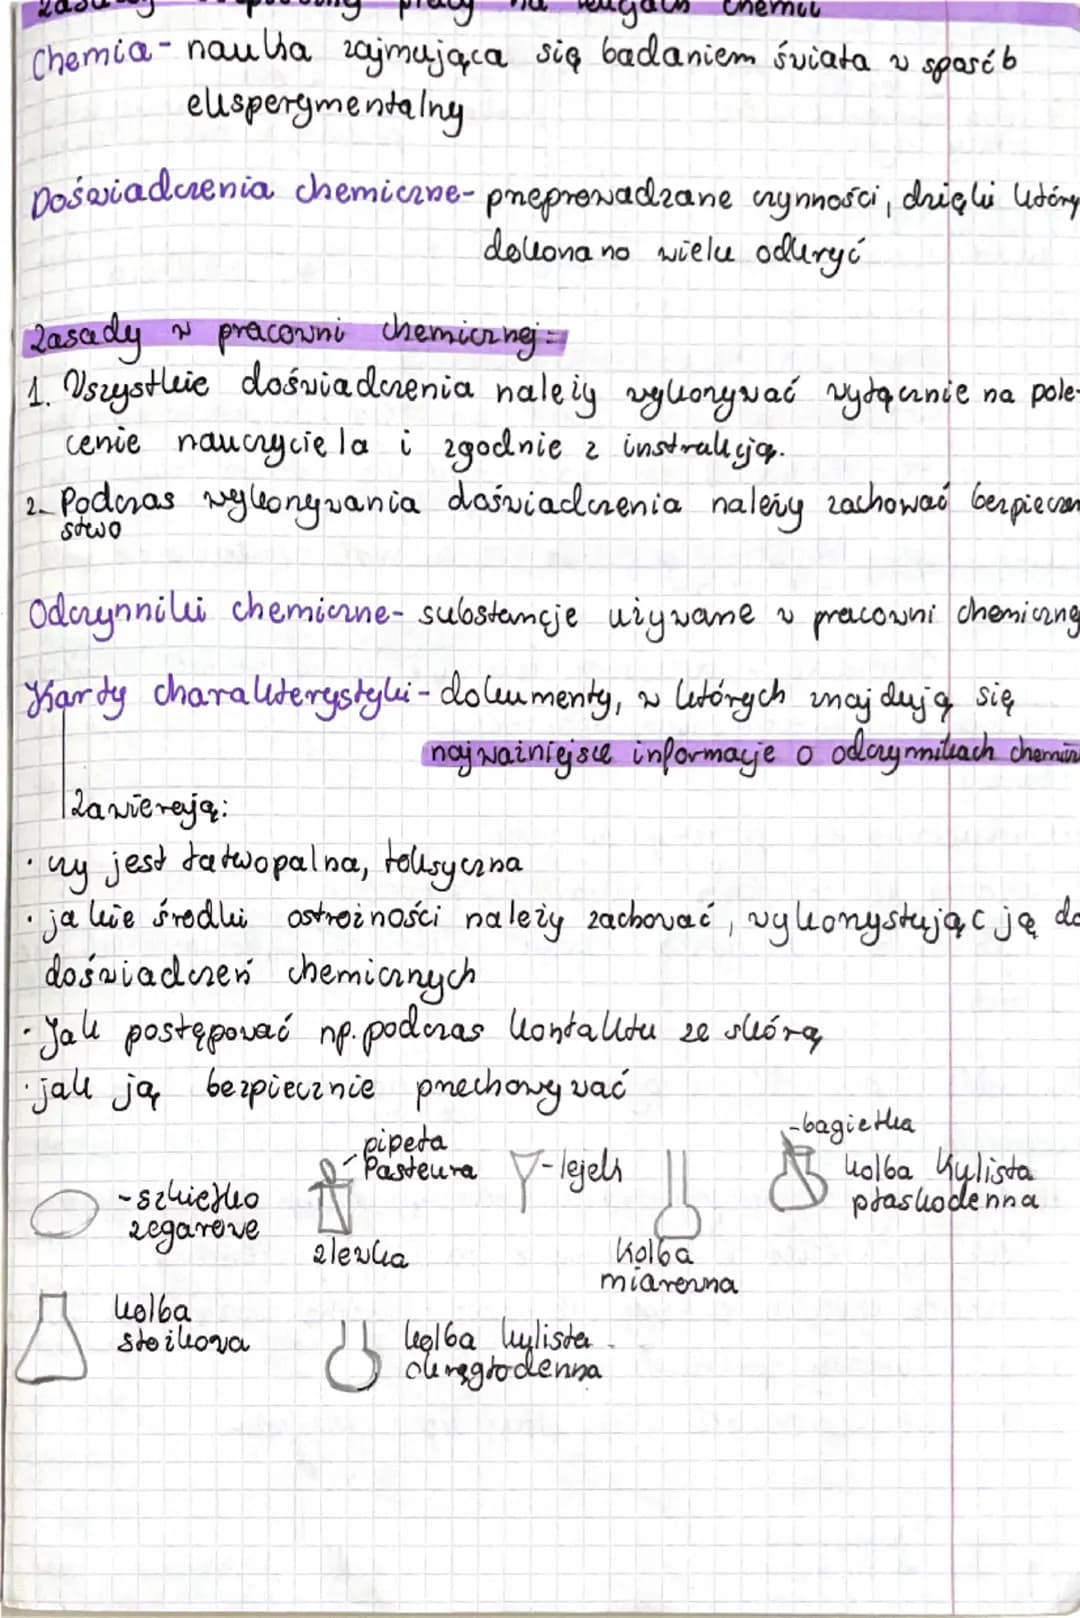 pracy na lekcjach chemii
Chemia - nauka zajmująca się badaniem świata w sposób
eksperymentalny
Doświadczenia chemiczne - przeprowadzane czynności, dzięki który
dokonano wielu odkryć
Zasady w pracowni chemicznej:
1. Wszystkie doświadczenia należy wykonywać wyłącznie na pole-
cenie nauczyciela i zgodnie z instrukcją.
2. Podczas wykonywania doświadczenia należy zachować bezpieczeń
stwo
Odczynniki chemiczne - substancje używane w pracowni chemiczne
Karty charakterystyki - dokumenty, w których znajdują się
najważniejsze informacje o odczynnikach chemicz
Zawierają:
· czy jest łatwopalna, toksyczna
· jakie środki ostrożności należy zachować, wykonystując ją do
doświadczeń chemicznych
· Jak postępować np. podczas kontaktu ze skórą
· jak ją bezpiecznie przechowywać
-bagietka
pipeta
Pasteura
-lejek
kolba kulista
płaskodenna
-szkiełko
zegarowe
zlewka
Kolba
miarowa
kolba
stożkowa
kolba kulista
okrągłodenna